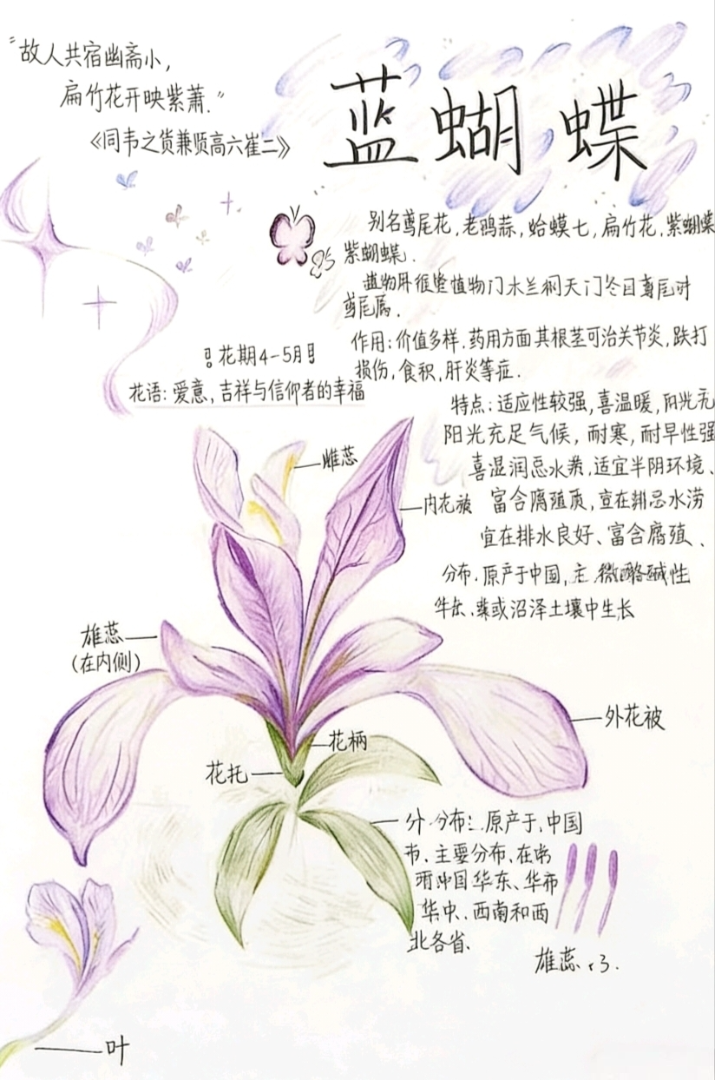 "故人共宿幽斋小,
扁竹花开映紫萧."
《同韦之货兼贤高六崔二》
蓝蝴蝶
别名鸢尾花,老鸹蒜,蛤蟆七,扁竹花,紫蝴蝶
紫蝴蝶.
植物门
鸢尾属.
作用:价值多样.药用方面其根茎可治关节炎,跌打
损伤,食积,肝炎等症.
花期4-5月
花语:爱意,吉祥与信仰者的幸福
特点:适应性较强,喜温暖,阳光无
阳光充足气候,耐寒,耐旱性强
喜湿润忌水,适宜半阴环境、
富含腐殖质,宜在排忌水涝
宜在排水良好、富含腐殖、
分布.原产于中国,主 微酸碱性
或沼泽土壤中生长
雌蕊
内花被
雄蕊
(在内侧)
外花被
花柄
花托
分布:原产于.中国
布.主要分布.在
中国华东、华
华中、西南和西
北各省.
雄蕊 x3.
叶